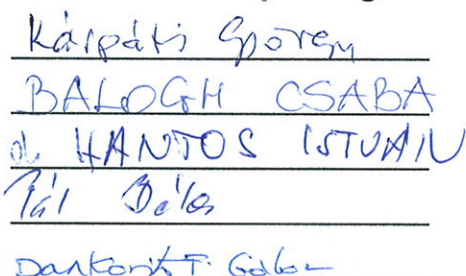 Kárpáti György
BALOGH CSABA
dr HANTOS ISTVÁN
Pál Béla
Dankovits T. Gábor